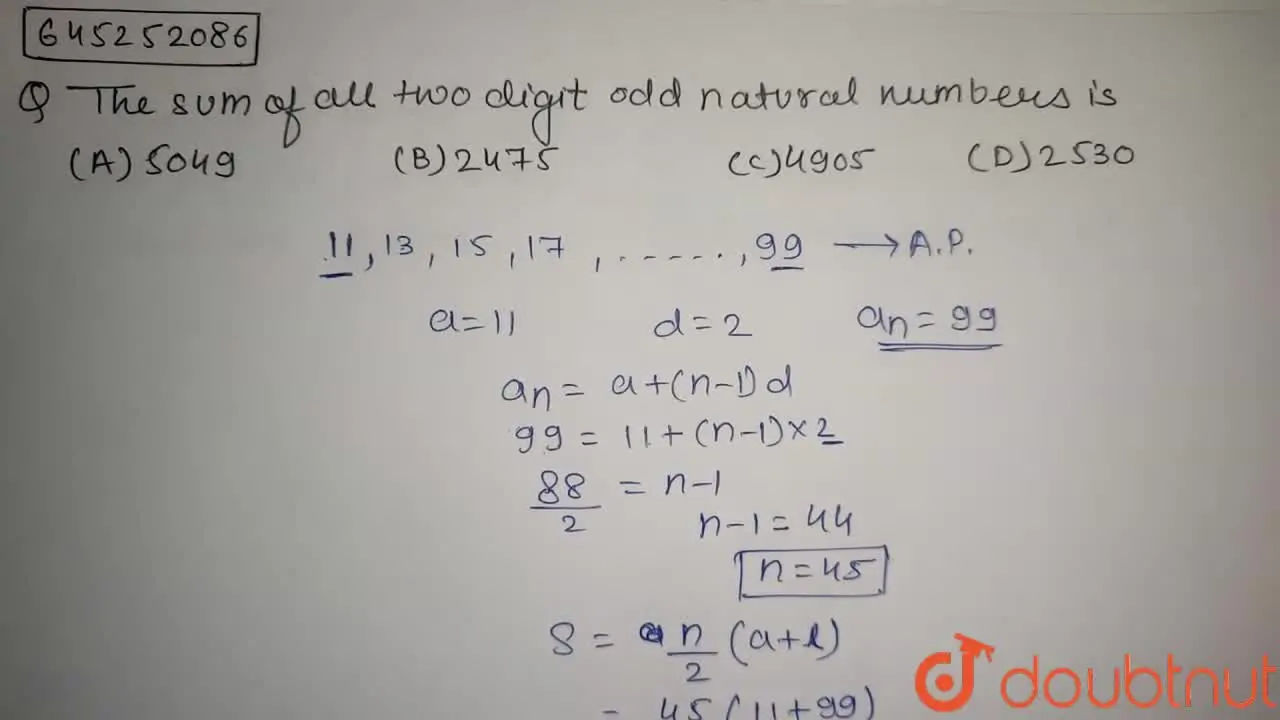 645252086
Q The sum of all two digit odd natural numbers is
(A) 5049 (B) 2475 (C) 4905 (D) 2530
11, 13, 15, 17, ......, 99 → A.P.
a = 11 d = 2 an = 99
an = a + (n-1) d
99 = 11 + (n-1) × 2
88/2 = n-1
n-1 = 44
n = 45
S = n/2 (a+l)
= 45 (11+99)
doubtnut